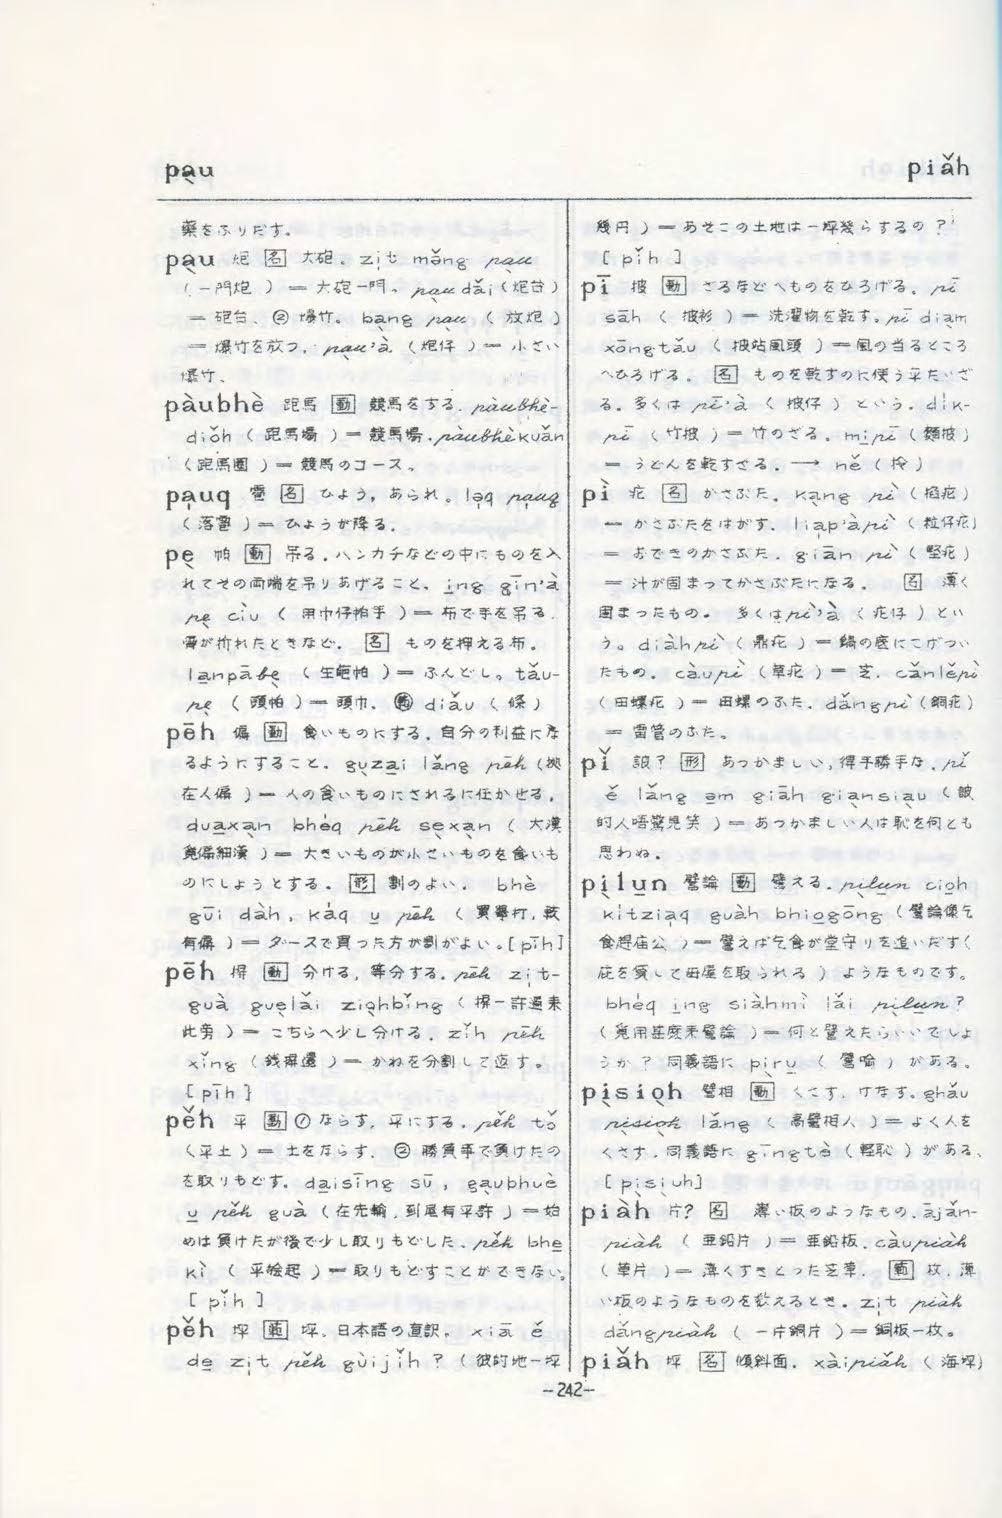 pa̱u
piǎh
薬をふりだす。
pa̤u 炮 名 大砲。zi̤t mǎng pa̤u
(一門炮)=大砲一門、pa̤u dǎi(炮台)
=砲台。②爆竹。ba̤ng pa̤u(放炮)
=爆竹を放つ,pa̤u'à(炮仔)=小さい
爆竹、
pàubhè 跑馬 動 競馬をする.pàubhè-
diǒh(跑馬場)=競馬場.pàubhèkuǎn
(跑馬圏)=競馬のコース。
pa̤uq 雹 名 ひょう,あられ。lə̤q pa̤uq
(落雹)=ひょうが降る.
pe̤ 帕 動 吊る.ハンカチなどの中にものを入
れてその両端を吊りあげること、i̱ng gīn'à
pe̤ cìu(用巾仔帕手)=布で手を吊る.
骨が折れたときなど. 名 ものを押える布.
la̱npābe̤(生 帕)=ふんどし。tǎu-
pe̤(頭帕)=頭巾. diǎu(條)
pēh 偏 動 食いものにする.自分の利益にな
るようにすること. gṳza̱i lǎng pēh(據
在人偏)=人の食いものにされるに任かせる,
dua̱xa̤n bhéq pēh se̤xa̤n(大漢
偏細漢)=大きいものが小さいものを食いも
のにしようとする. 形 割のよい. bhè
gūi dàh, káq u̱ pēh(買 打,較
有偏)=ダースで買った方が割がよい。[pīh]
pēh 摒 動 分ける,等分する.pēh zi̤t-
guà gue̤lǎi zio̤hbǐng(摒一許過来
此旁)=こちらへ少し分ける. zǐh pēh
xǐng(銭摒還)=かねを分割して返す。
[pīh]
pěh 平 動 ①ならす,平にする.pěh tǒ
(平土)=土をならす. ②勝負事で負けたの
を取りもどす. da̱isīng sū, ga̤ubhuè
u̱ pěh guà(在先輸,到尾有平許)=始
めは負けたが後で少し取りもどした.pěh bhe̱
kì(平 起)=取りもどすことができない。
[pǐh]
pěh 坪 坪.日本語の直訳. xiā ě
de̱ zi̤t pěh gùijǐh?(彼的地一坪
幾円)=あそこの土地は一坪幾らするの?
[pǐh]
pī 披 動 ざるなどへものをひろげる。pī
sāh(披衫)=洗濯物を乾す。pī dia̤m
xōng·tǎu(披站風頭)=風の当るところ
へひろげる. 名 ものを乾すのに使う平たいざ
る.多くは pī'à(披仔)という.dik-
pī(竹披)=竹のざる.mi̱pī(麵披)
=うどんを乾すざる.→ ně(拎)
pì 疕 名 かさぶた.Ka̤ng pì(掐疕)
=かさぶたをはがす. lia̤p'àpì(粒仔疕)
=おできのかさぶた. giān pì(堅疕)
=汁が固まってかさぶたになる. 名 薄く
固まったもの. 多くはpì'à(疕仔)とい
う。diàhpì(鼎疕)=鍋の底にこげつい
たもの. càupì(草疕)=芝. cǎnlěpì
(田螺疕)=田螺のふた. dǎngpì(銅疕)
=雷管のふた。
pǐ 詖? 形 あつかましい,得手勝手な.pǐ
ě lǎng ə̱m giāh gia̤nsia̤u(詖
的人唔驚見笑)=あつかましい人は恥を何とも
思わぬ.
pi̤lu̱n 譬論 動 譬える.pi̤lu̱n cio̱h
kítzia̤q guàh bhio̱gōng(譬論像乞
食趕庙公)=譬えば乞食が堂守りを追いだす(
庇を貸して母屋を取られる)ようなものです。
bhéq i̱ng siàhmì lǎi pi̤lu̱n?
( 用甚麼来譬論)=何と譬えたらいいでしょ
うか?同義語に pi̤ru̱(譬喩)がある。
pi̤sio̤h 譬相 動 くさす.けなす.ghǎu
pi̤sio̤h lǎng( 譬相人)=よく人を
くさす.同義語に gīngtè(軽恥)がある、
[pi̤si̤uh]
piàh 片? 名 薄い坂のようなもの.ājǎn-
piàh(亜鉛片)=亜鉛板.càupiàh
(草片)=薄くすきとった芝草. 枚.薄
い坂のようなものを数えるとき.zi̤t piàh
dǎngpiàh(一片銅片)=銅板一枚。
piǎh 坪 名 傾斜面. xàipiǎh(海坪)
-242-